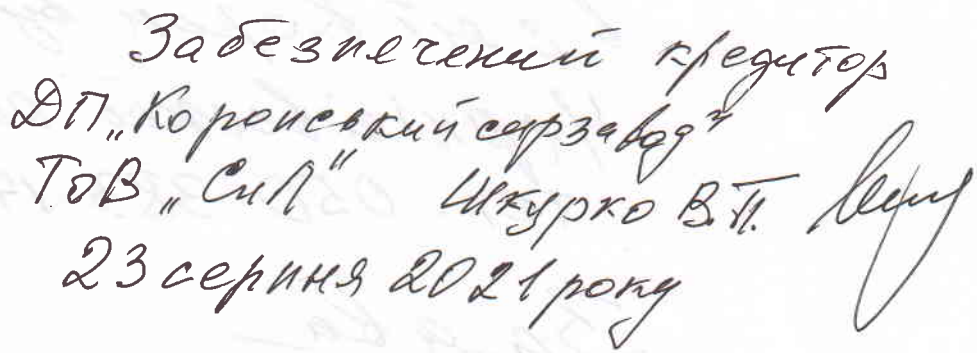 Забезпечений кредитор
ДП „Коропський сирзавод"
ТОВ „СиЛ" Шкурко В.П.
23 серпня 2021 року